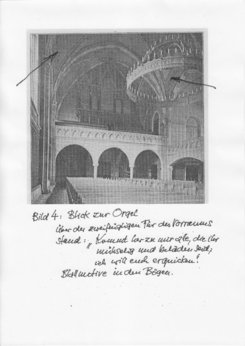 Bild 4: Blick zur Orgel
Über der zweiflügligen Tür des Vorraums
stand: „Kommt her zu mir alle, die ihr
mühselig und beladen seid,
ich will euch erquicken!
Blattmotive in den Bögen.